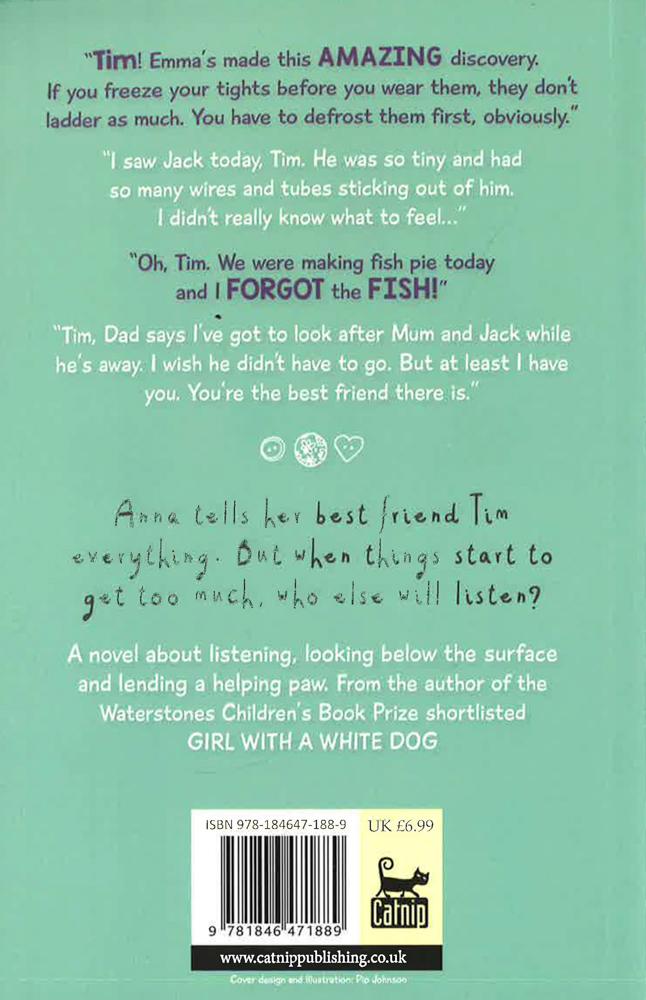 "Tim! Emma's made this AMAZING discovery.
If you freeze your tights before you wear them, they don't
ladder as much. You have to defrost them first, obviously."
"I saw Jack today, Tim. He was so tiny and had
so many wires and tubes sticking out of him.
I didn't really know what to feel..."
"Oh, Tim. We were making fish pie today
and I FORGOT the FISH!"
"Tim, Dad says I've got to look after Mum and Jack while
he's away. I wish he didn't have to go. But at least I have
you. You're the best friend there is."
Anna tells her best friend Tim
everything. But when things start to
get too much, who else will listen?
A novel about listening, looking below the surface
and lending a helping paw. From the author of the
Waterstones Children's Book Prize shortlisted
GIRL WITH A WHITE DOG
ISBN 978-184647-188-9
UK £6.99
Catnip
9 781846 471889
www.catnippublishing.co.uk
Cover design and illustration: Pip Johnson